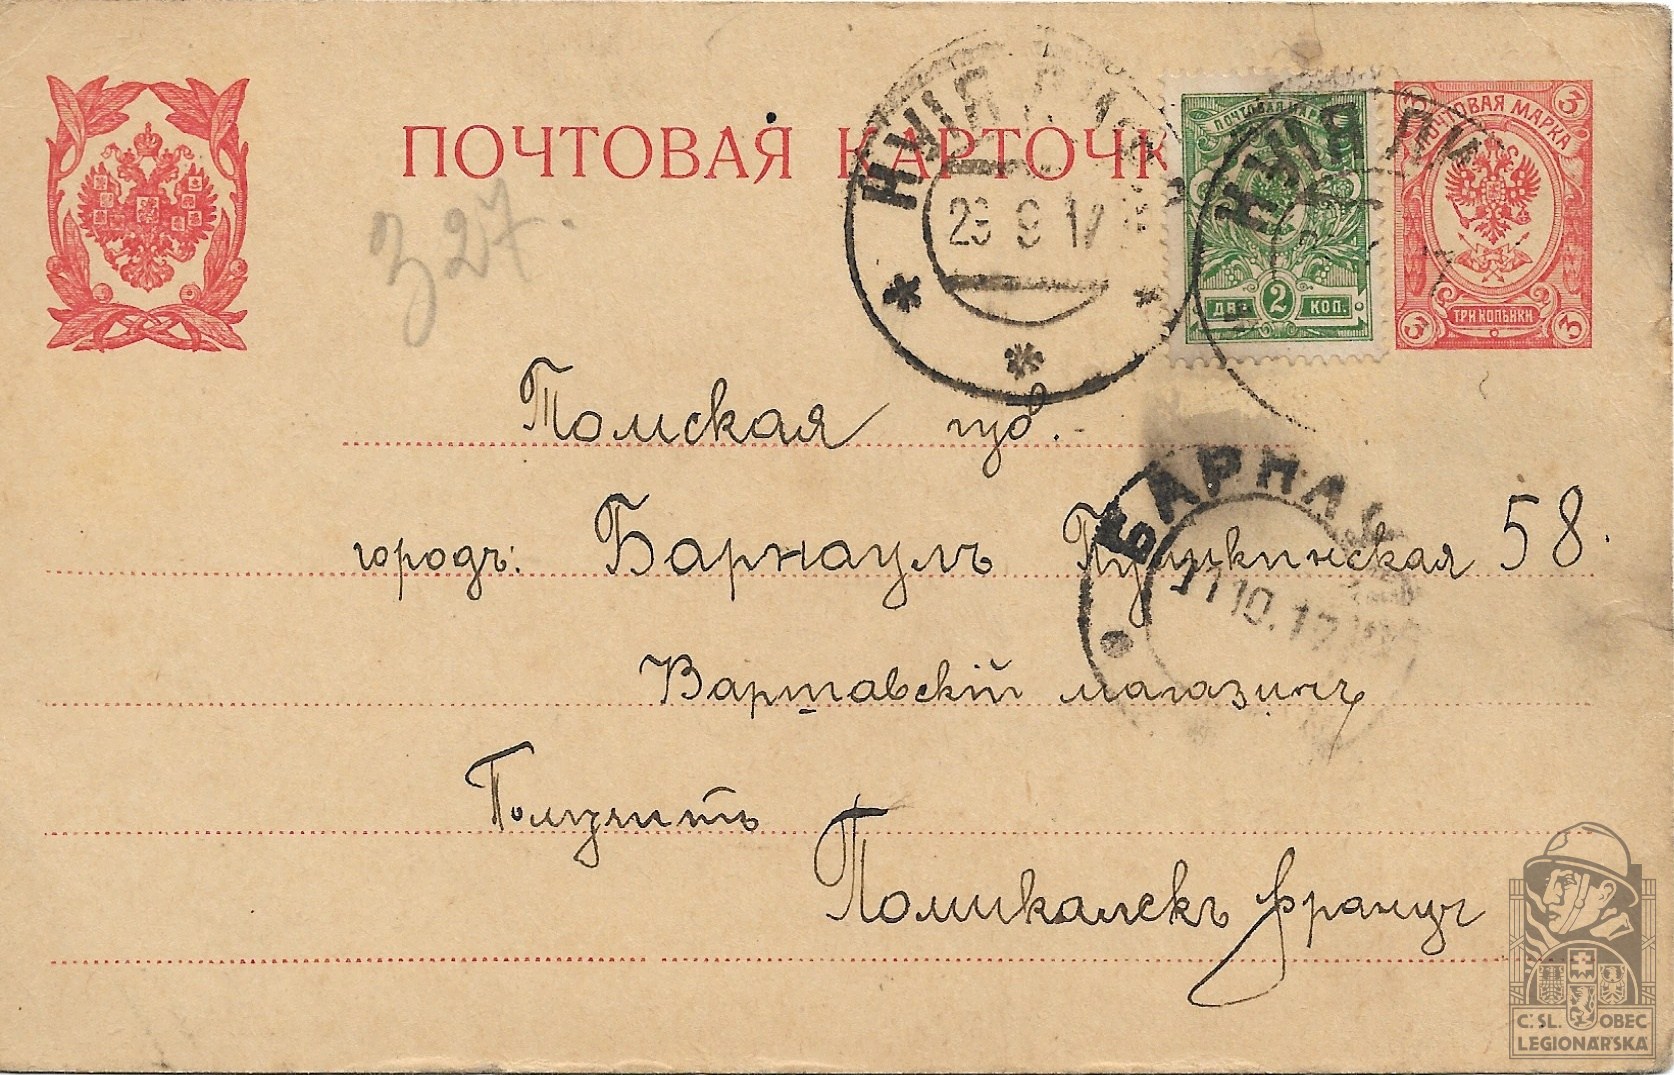 ПОЧТОВАЯ КАРТОЧК
327.
23 9 17
ПОЧТОВАЯ МАР
ДВЕ 2 КОП.
ПОЧТОВАЯ МАРКА
3 3
ТРИ КОПѢЙКИ
3 3
Томская губ.
городъ: Барнаулъ Пушкинская 58.
Варшавскій магазинъ
Получитъ
Помикалекъ Францъ
БАРНАУ
10.17
Č.SL. OBEC
LEGIONÁŘSKÁ